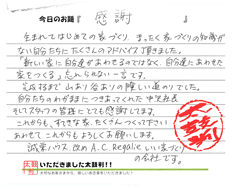 今日のお題『 感謝 』
生まれてはじめての家づくり。まったく家づくりの知識が
ない自分たちにたくさんのアドバイス頂きました。
「新しい家に自分達があわせるのではなく、自分達にあわせた
家をつくる」忘れられない一言です。
完成まで山あり谷ありの険しい道のりでした。
自分たちのわがままにつきあってくれた中央社長
そしてスタッフの皆様にとても感謝してます。
これからも、すてきな家、たくさんつくって下さい
あわせてこれからもよろしくお願いします。
誠業ハウス 改め A.C. Repairs いい家づくり
の会社です。
太鼓判
いただきました太鼓判!!